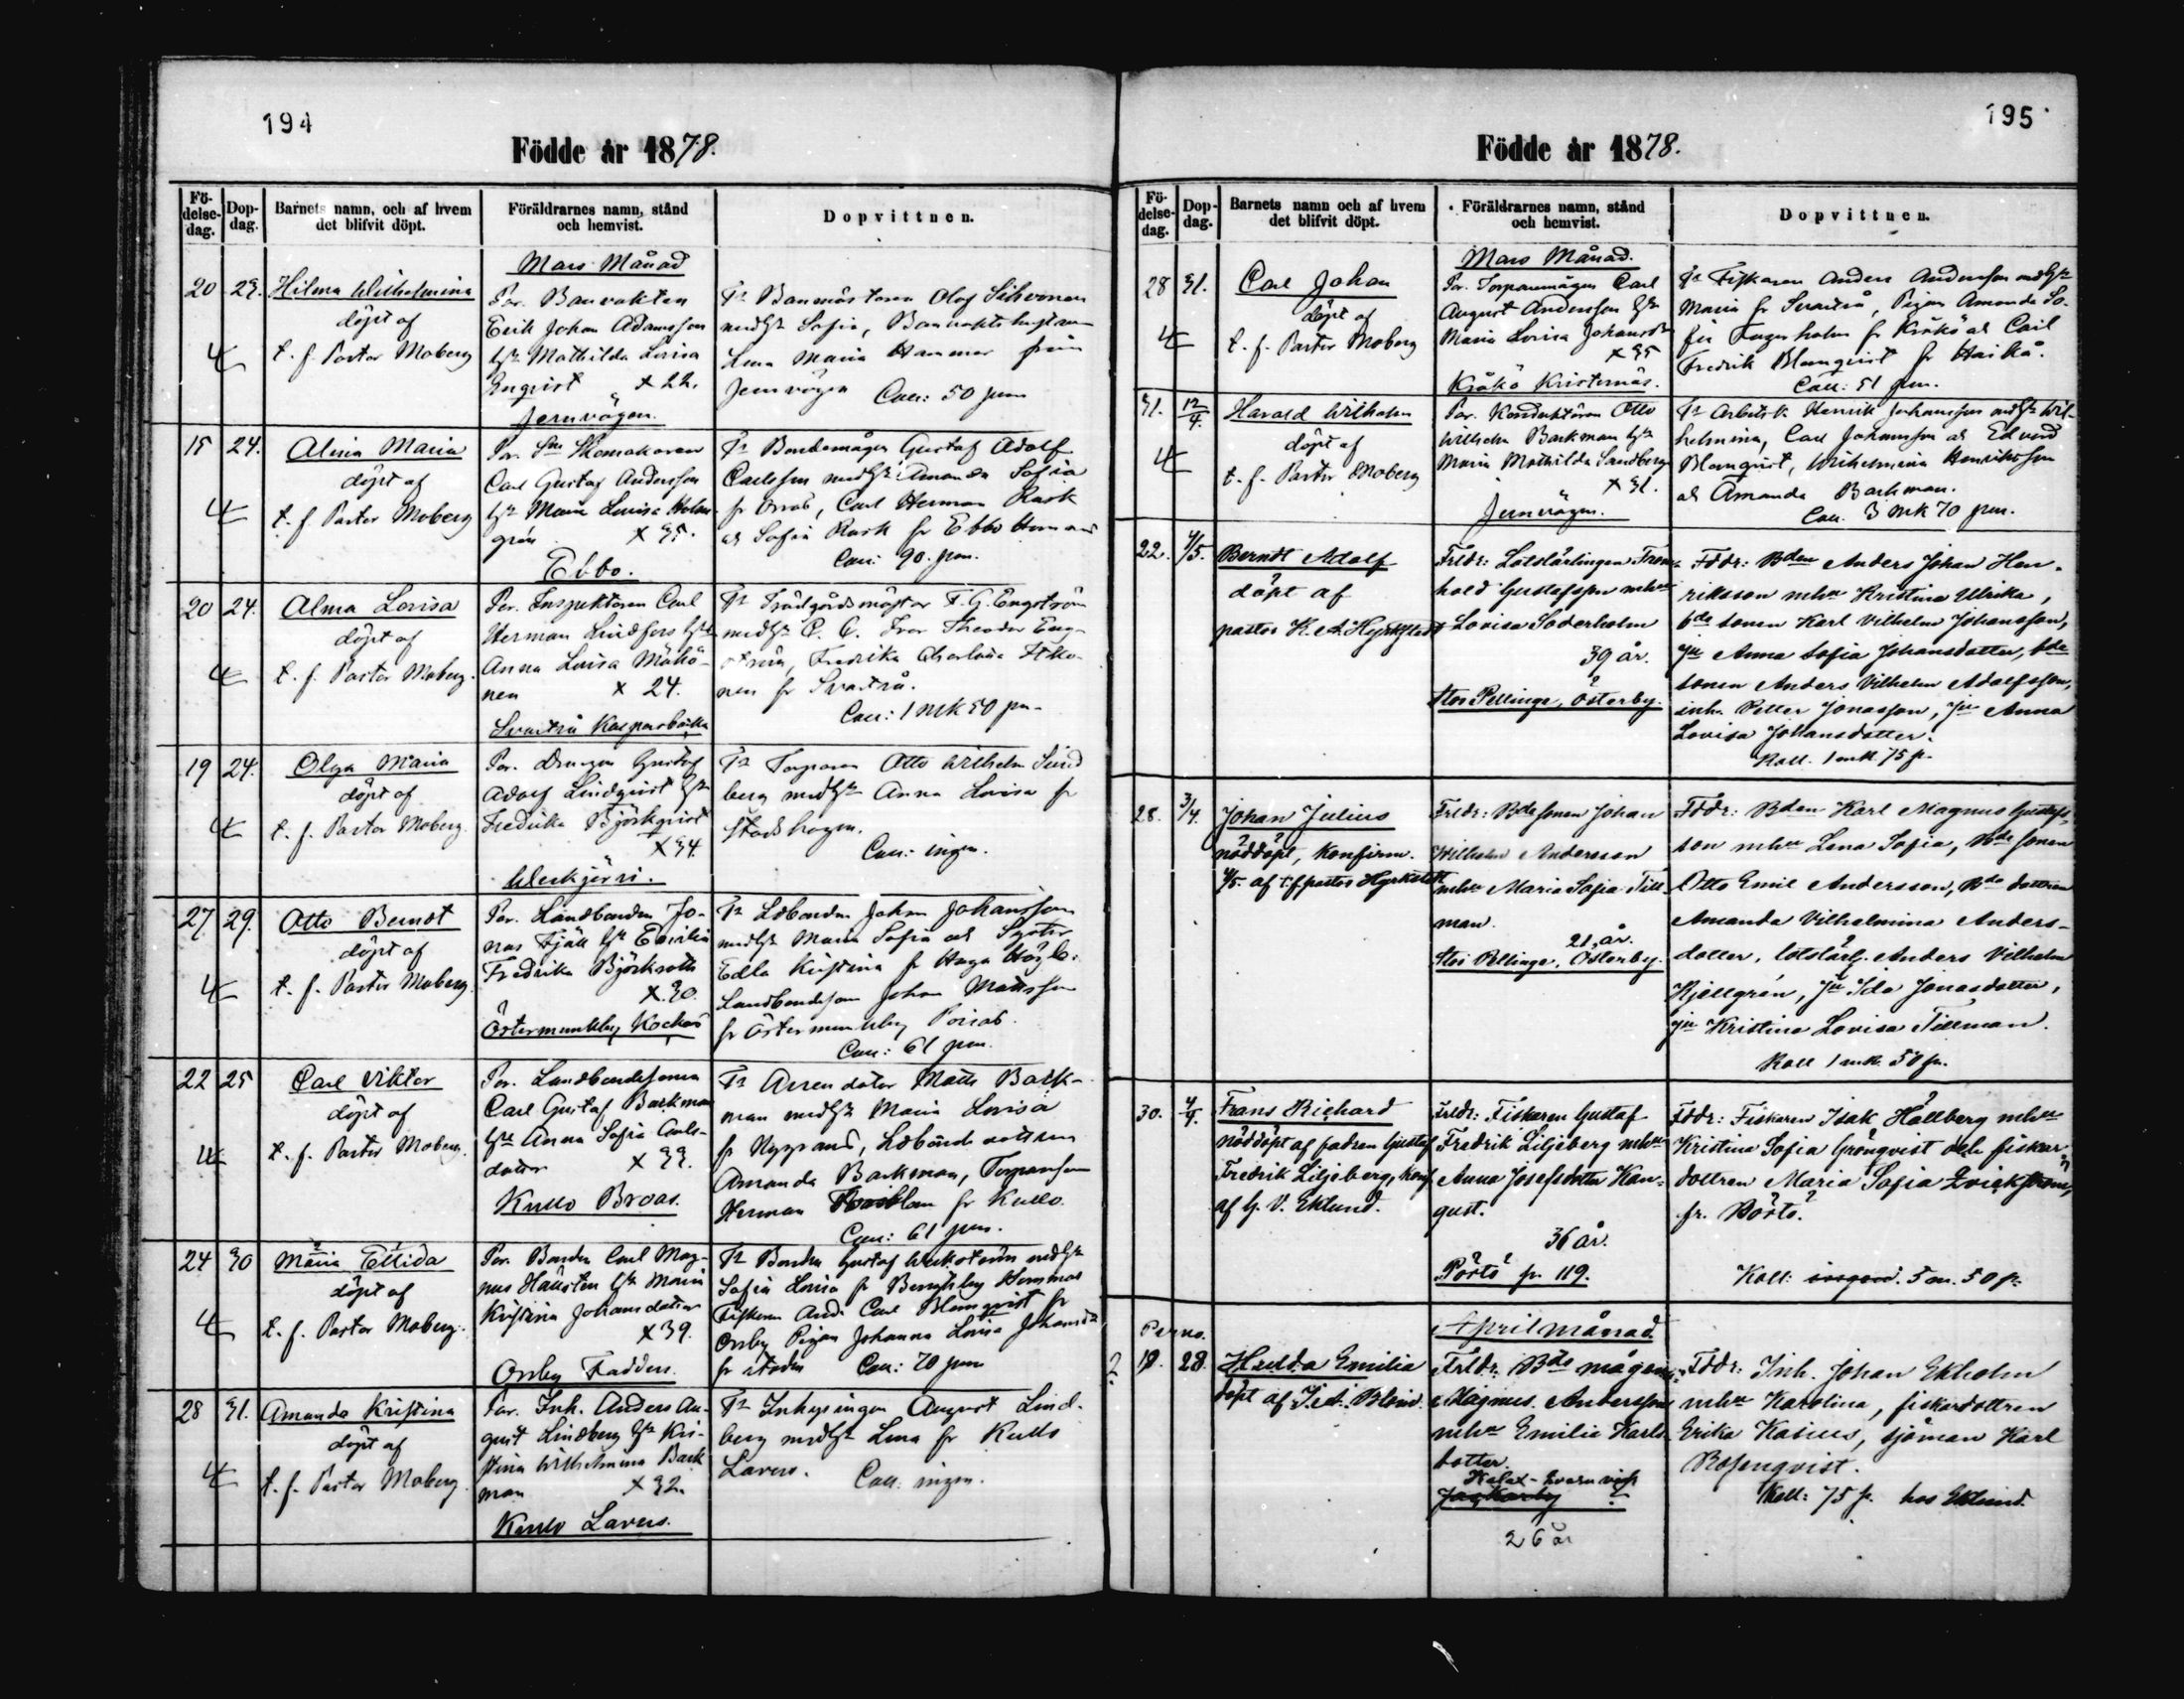 194
Födde år 1878.
Fö-
delse-
dag.
Dop-
dag.
Barnets namn, och af hvem
det blifvit döpt.
Föräldrarnes namn, stånd
och hemvist.
Dopvittnen.
Mars Månad
20 23. Hilma Wilhelmina
döpt af
t. f. Pastor Moberg
Par. Banvakten
Erik Johan Adamsson
hst Mathilda Lovisa
Enqvist x 22.
Jernvägen.
Banmästaren Olof Silverman
medhst Sofia, Banvaktshustrun
Lena Maria Hammar från
Jernvägen Coll: 50 pm
15 24. Alina Maria
döpt af
t. f. Pastor Moberg
Par. Skomakaren
Carl Gustaf Andersson
hst Maria Lovisa Holm-
grén x 35.
Ebbo.
Bondemågen Gustaf Adolf
Carlsson medhst Amanda Sofia
fr Orrab, Carl Herman Rask
och Sofia Rask fr Ebbo
Coll: 90. pm.
20 24. Alma Lovisa
döpt af
t. f. Pastor Moberg.
Par. Inspektoren Carl
Herman Lindfors hst
Anna Lovisa Mähö-
nen x 24.
Svartså Kasparbacka
Trädgårdsmästar F. G. Engström
medhst Theodor Eng-
ström, Fredrika Charlotta Itko-
nen fr Svartså.
Coll: 1 mk 50 pm.
19 24. Olga Maria
döpt af
t. f. Pastor Moberg.
Par. Drengen Gustaf
Adolf Lindqvist hst
Fredrika Björkqvist
x 34.
Werkjärvi.
Torparen Otto Wilhelm Sund
berg medhst Anna Lovisa fr
Stadshagen.
Coll: ingen.
27 29. Otto Berndt
döpt af
t. f. Pastor Moberg
Par. Landbonden Jo-
nas Fjäll hst Emilia
Fredrika Björksroth
x 30.
Östermunkby Kockas
Ldbonden Johan Johansson
medhst Maria Sofia och Syster
Edla Kristina fr Haga
Landbondeson Johan Mattsson
fr Östermunkby
Coll: 61 pm.
22 25 Carl Viktor
döpt af
t. f. Pastor Moberg.
Par. Landbondesonen
Carl Gustaf Backman
hst Anna Sofia Carls-
dotter x 33.
Kullo Broas.
Arrendator Matts Back-
man medhst Maria Lovisa
fr Nygrand, Ldbondedottren
Amanda Backman, Torparson
Herman fr Kullo.
Coll: 61 pm.
24 30 Maria Ellida
döpt af
t. f. Pastor Moberg.
Par. Bonden Carl Mag-
nus Hällsten hst Maria
Kristina Johansdotter
x 39.
Orrby Fadders.
Bonden Gustaf Weckström medhst
Sofia Lovisa fr Bengtsby Hommas
Fiskaren And: Carl Blomqvist fr
Orrby Pigan Johanna Lovisa Johansdr
fr staden Coll: 70 pm
28 31. Amanda Kristina
döpt af
t. f. Pastor Moberg.
Par. Inh. Anders Au-
gust Lindberg hst Kri-
stina Wilhelmina Back
man x 32.
Kullo Lavers.
Inhysingen August Lind-
berg medhst Lena fr Kullo
Lavers. Coll: ingen.
195
Födde år 1878.
Fö-
delse-
dag.
Dop-
dag.
Barnets namn och af hvem
det blifvit döpt.
Föräldrarnes namn, stånd
och hemvist.
Dopvittnen.
Mars Månad.
28 31. Carl Johan
döpt af
t. f. Pastor Moberg
Par. Torparemågen Carl
August Andersson hst
Maria Lovisa Johansdr
x 35
Kråkö Kristernäs.
Fiskaren Anders Andersson medhst
Maria fr Svartså, Pigan Amanda So-
fia Fagerholm fr Kråkö och Carl
Fredrik Blomqvist fr Haikå.
Coll: 51 pm.
31. 12/4. Harald Wilhelm
döpt af
t. f. Pastor Moberg
Par. Konduktören Otto
Wilhelm Backman hst
Maria Mathilda Sandberg
x 31.
Jernvägen.
Arbetsk. Henrik Johansson medhst Wil-
helmina, Carl Johansson och Edvard
Blomqvist, Wilhelmina Henriksson
och Amanda Backman.
Coll. 3 mk 70 pm.
22. 4/5. Berndt Adolf
döpt af
pastor K. A. Hyrkstedt
Frldr: Lotslärlingen From-
hold Gustafsson mhu
Lovisa Söderholm
39 år.
Stor Pellinge, Österby.
Fddr: Bden Anders Johan Hen-
riksson mhu Kristina Ulrika,
bdesonen Karl Vilhelm Johansson,
jfu Anna Sofia Johansdotter, bde
sonen Anders Vilhelm Adolfsson,
inh. Petter Jonasson, Jfu Anna
Lovisa Johansdotter.
Koll. 1 mk 75 p.
28. 3/4. Johan Julius
nöddöpt, konfirm.
4/5. af t. f pastor Hyrkstedt
Frldr: Bdesonen Johan
Wilhelm Andersson
mhu Maria Sofia Till-
man.
21 år.
Stor Pellinge, Österby.
Fddr: Bden Karl Magnus Gustafs-
son mhu Lena Sofia, Bdesonen
Otto Emil Andersson, Bdedottren
Amanda Vilhelmina Anders-
dotter, lotslärl. Anders Vilhelm
Kjellgrén, Jfu Ida Jonasdotter,
jfu Kristina Lovisa Tillman.
Koll 1 mk 50 p.
30. Frans Richard
nöddöpt af fadren Gustaf
Fredrik Liljeberg, konf.
af G. V. Eklund.
Frldr: Fiskaren Gustaf
Fredrik Liljeberg mhu
Anna Josefsdotter Kan-
gust.
36 år.
Pörtö p. 119.
Fddr: Fiskaren Isak Hällberg mhu
Kristina Sofia Grönqvist och fiskar-
dottren Maria Sofia
fr. Pörtö.
Koll: 5 m. 50 p.
April månad
Perno.
? 19. 28. Hulda Emilia
döpt af
Frldr: Bdemågen
Magnus Andersson
mhu Emilia Karls-
dotter.
26 år
Fddr: Inh. Johan Ekholm
mhu Karolina, fiskardottren
Erika Kasius, sjöman Karl
Rosenqvist.
Koll: 75 p. hos Eklund.